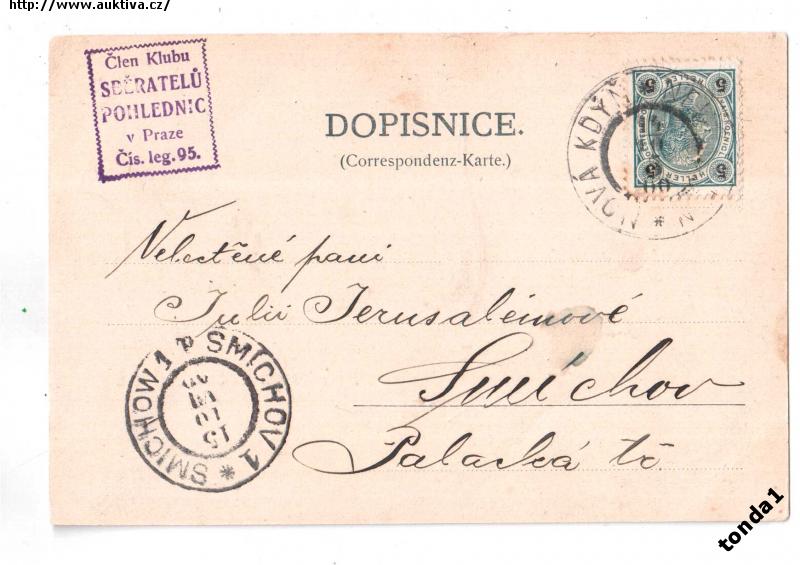 http://www.auktiva.cz/
Člen Klubu
SBĚRATELŮ
POHLEDNIC
v Praze
Čís. leg. 95.
DOPISNICE.
(Correspondenz-Karte.)
5 HELLER 5
5 HELLER 5
NOVÁ KDÝNĚ
Velectěné paní
Julii Jerusalémové
Smíchov
Palacká tř.
SMÍCHOV 1 * SMICHOW 1
tonda1